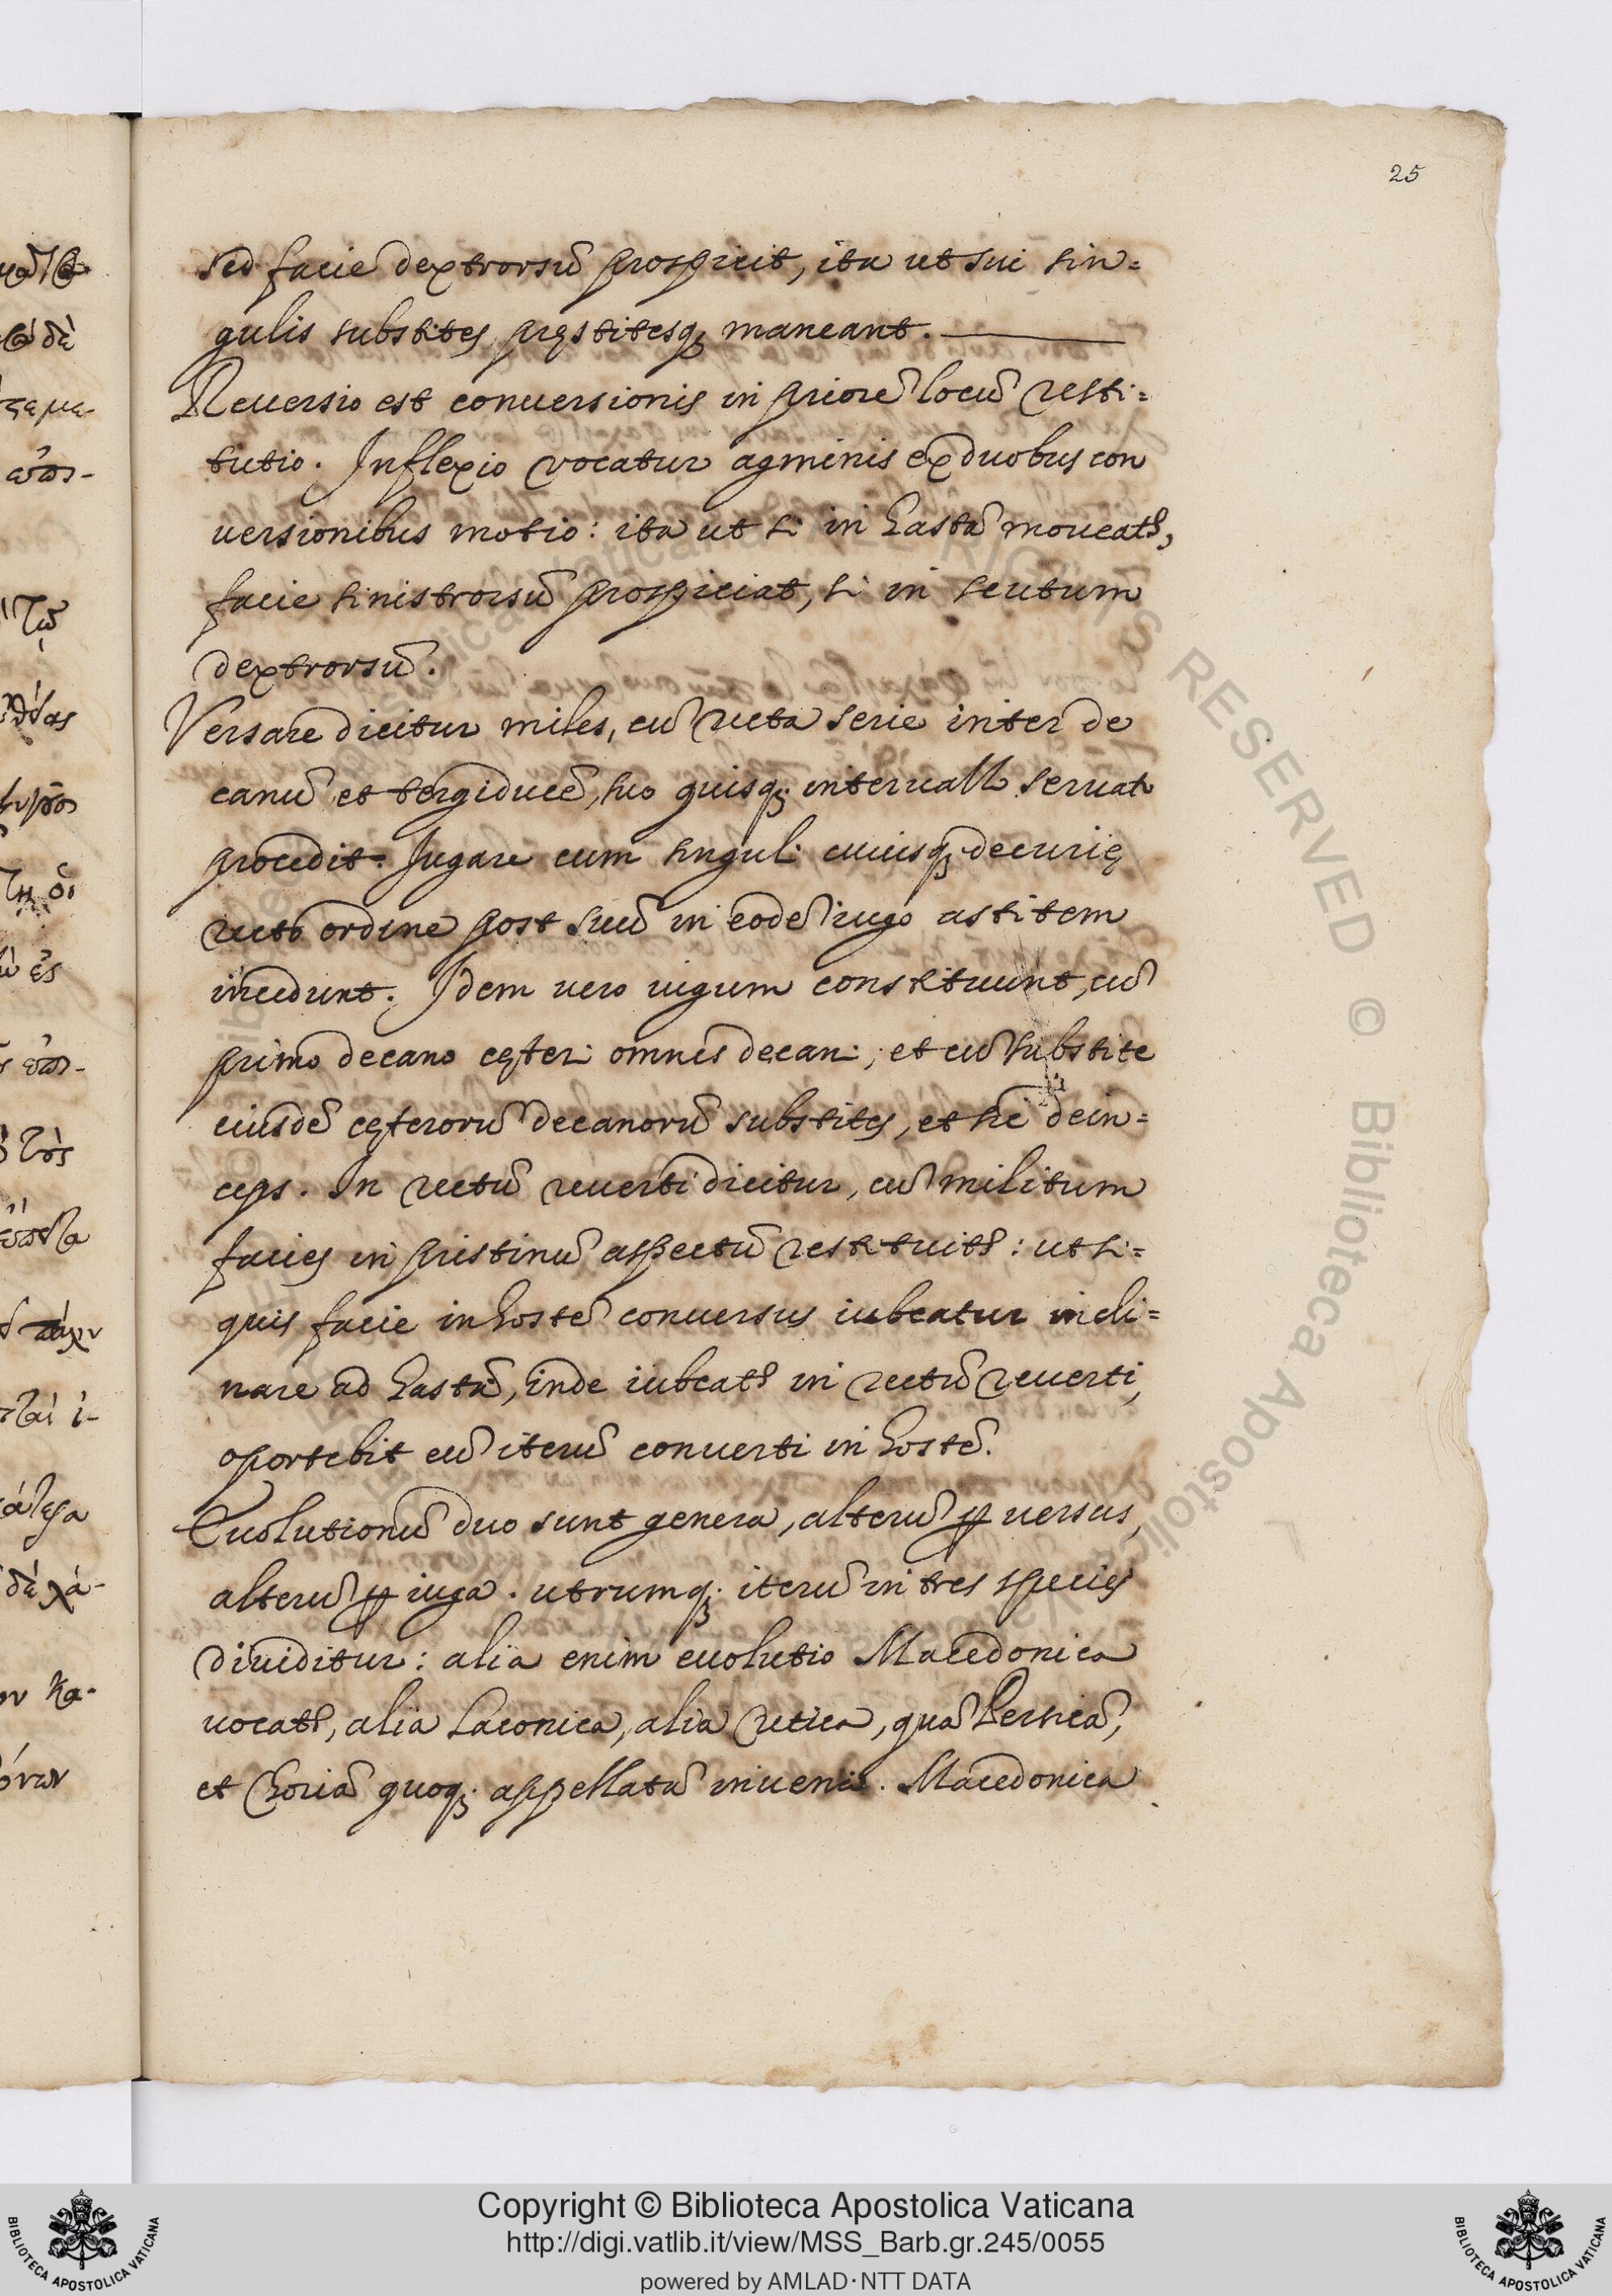 25
sed facie dextrorsũ prospicit, ita ut sui sin=
gulis substites pręstitesq; maneant.
Reuersio est conuersionis in priorẽ locũ resti=
tutio. Inflexio vocatur agminis ex duobus con
uersionibus motio: ita ut si in hastã moueatr,
facie sinistrorsũ prospiciat, si in scutum
dextrorsũ.
Versare dicitur miles, cũ recta serie inter de
canũ et tergiducẽ, suo quisq; interuallo seruato
procedit. Jugare cum singuli cuiusq; decurię
recto ordine post suũ in eodẽ iugo astitem
incedunt. Idem uero iugum constituunt, cũ
primo decano cęteri omnes decani; et cũ substite
eiusdẽ cęterorũ decanorũ substites, et sic dein=
ceps. In rectũ reuerti dicitur, cũ militum
facies in pristinũ aspectũ restituitr: ut si=
quis facie in hostẽ conuersus iubeatur incli=
nare ad hastã, inde iubeatr in rectũ reuerti,
oportebit eũ iterũ conuerti in hostẽ.
Euolutionũ duo sunt genera, alterũ ꝑ uersus,
alterũ ꝑ iuga. utrumq; iterũ in tres species
diuiditur: alia enim euolutio Macedonica
uocatr, alia Laconica, alia Cretica, quã Persicã,
et Choriã quoq; appellatã inuenio. Macedonica
ηόσ
Copyright © Biblioteca Apostolica Vaticana
http://digi.vatlib.it/view/MSS_Barb.gr.245/0055
powered by AMLAD·NTT DATA
BIBLIOTECA APOSTOLICA VATICANA
BIBLIOTECA APOSTOLICA VATICANA